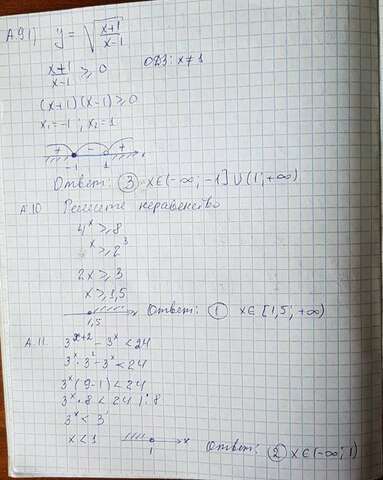 А 9 1) y = √(x+1/x-1)
x+1/x-1 ⩾ 0 ОДЗ: x ≠ 1
(x+1)(x-1) ⩾ 0
x₁ = -1 ; x₂ = 1
+ - + x
-1 1
Ответ: ③ x∈(-∞; -1] ∪ (1; +∞)
А 10 Решите неравенство
4ˣ ⩾ 8
4ˣ ⩾ 2³
2x ⩾ 3
x ⩾ 1,5
1,5 x Ответ: ① x∈ [1,5; +∞)
А 11 3ˣ⁺² - 3ˣ < 24
3ˣ · 3² - 3ˣ < 24
3ˣ (9-1) < 24
3ˣ · 8 < 24 | : 8
3ˣ < 3¹
x < 1 1 x Ответ: ② x∈(-∞; 1)